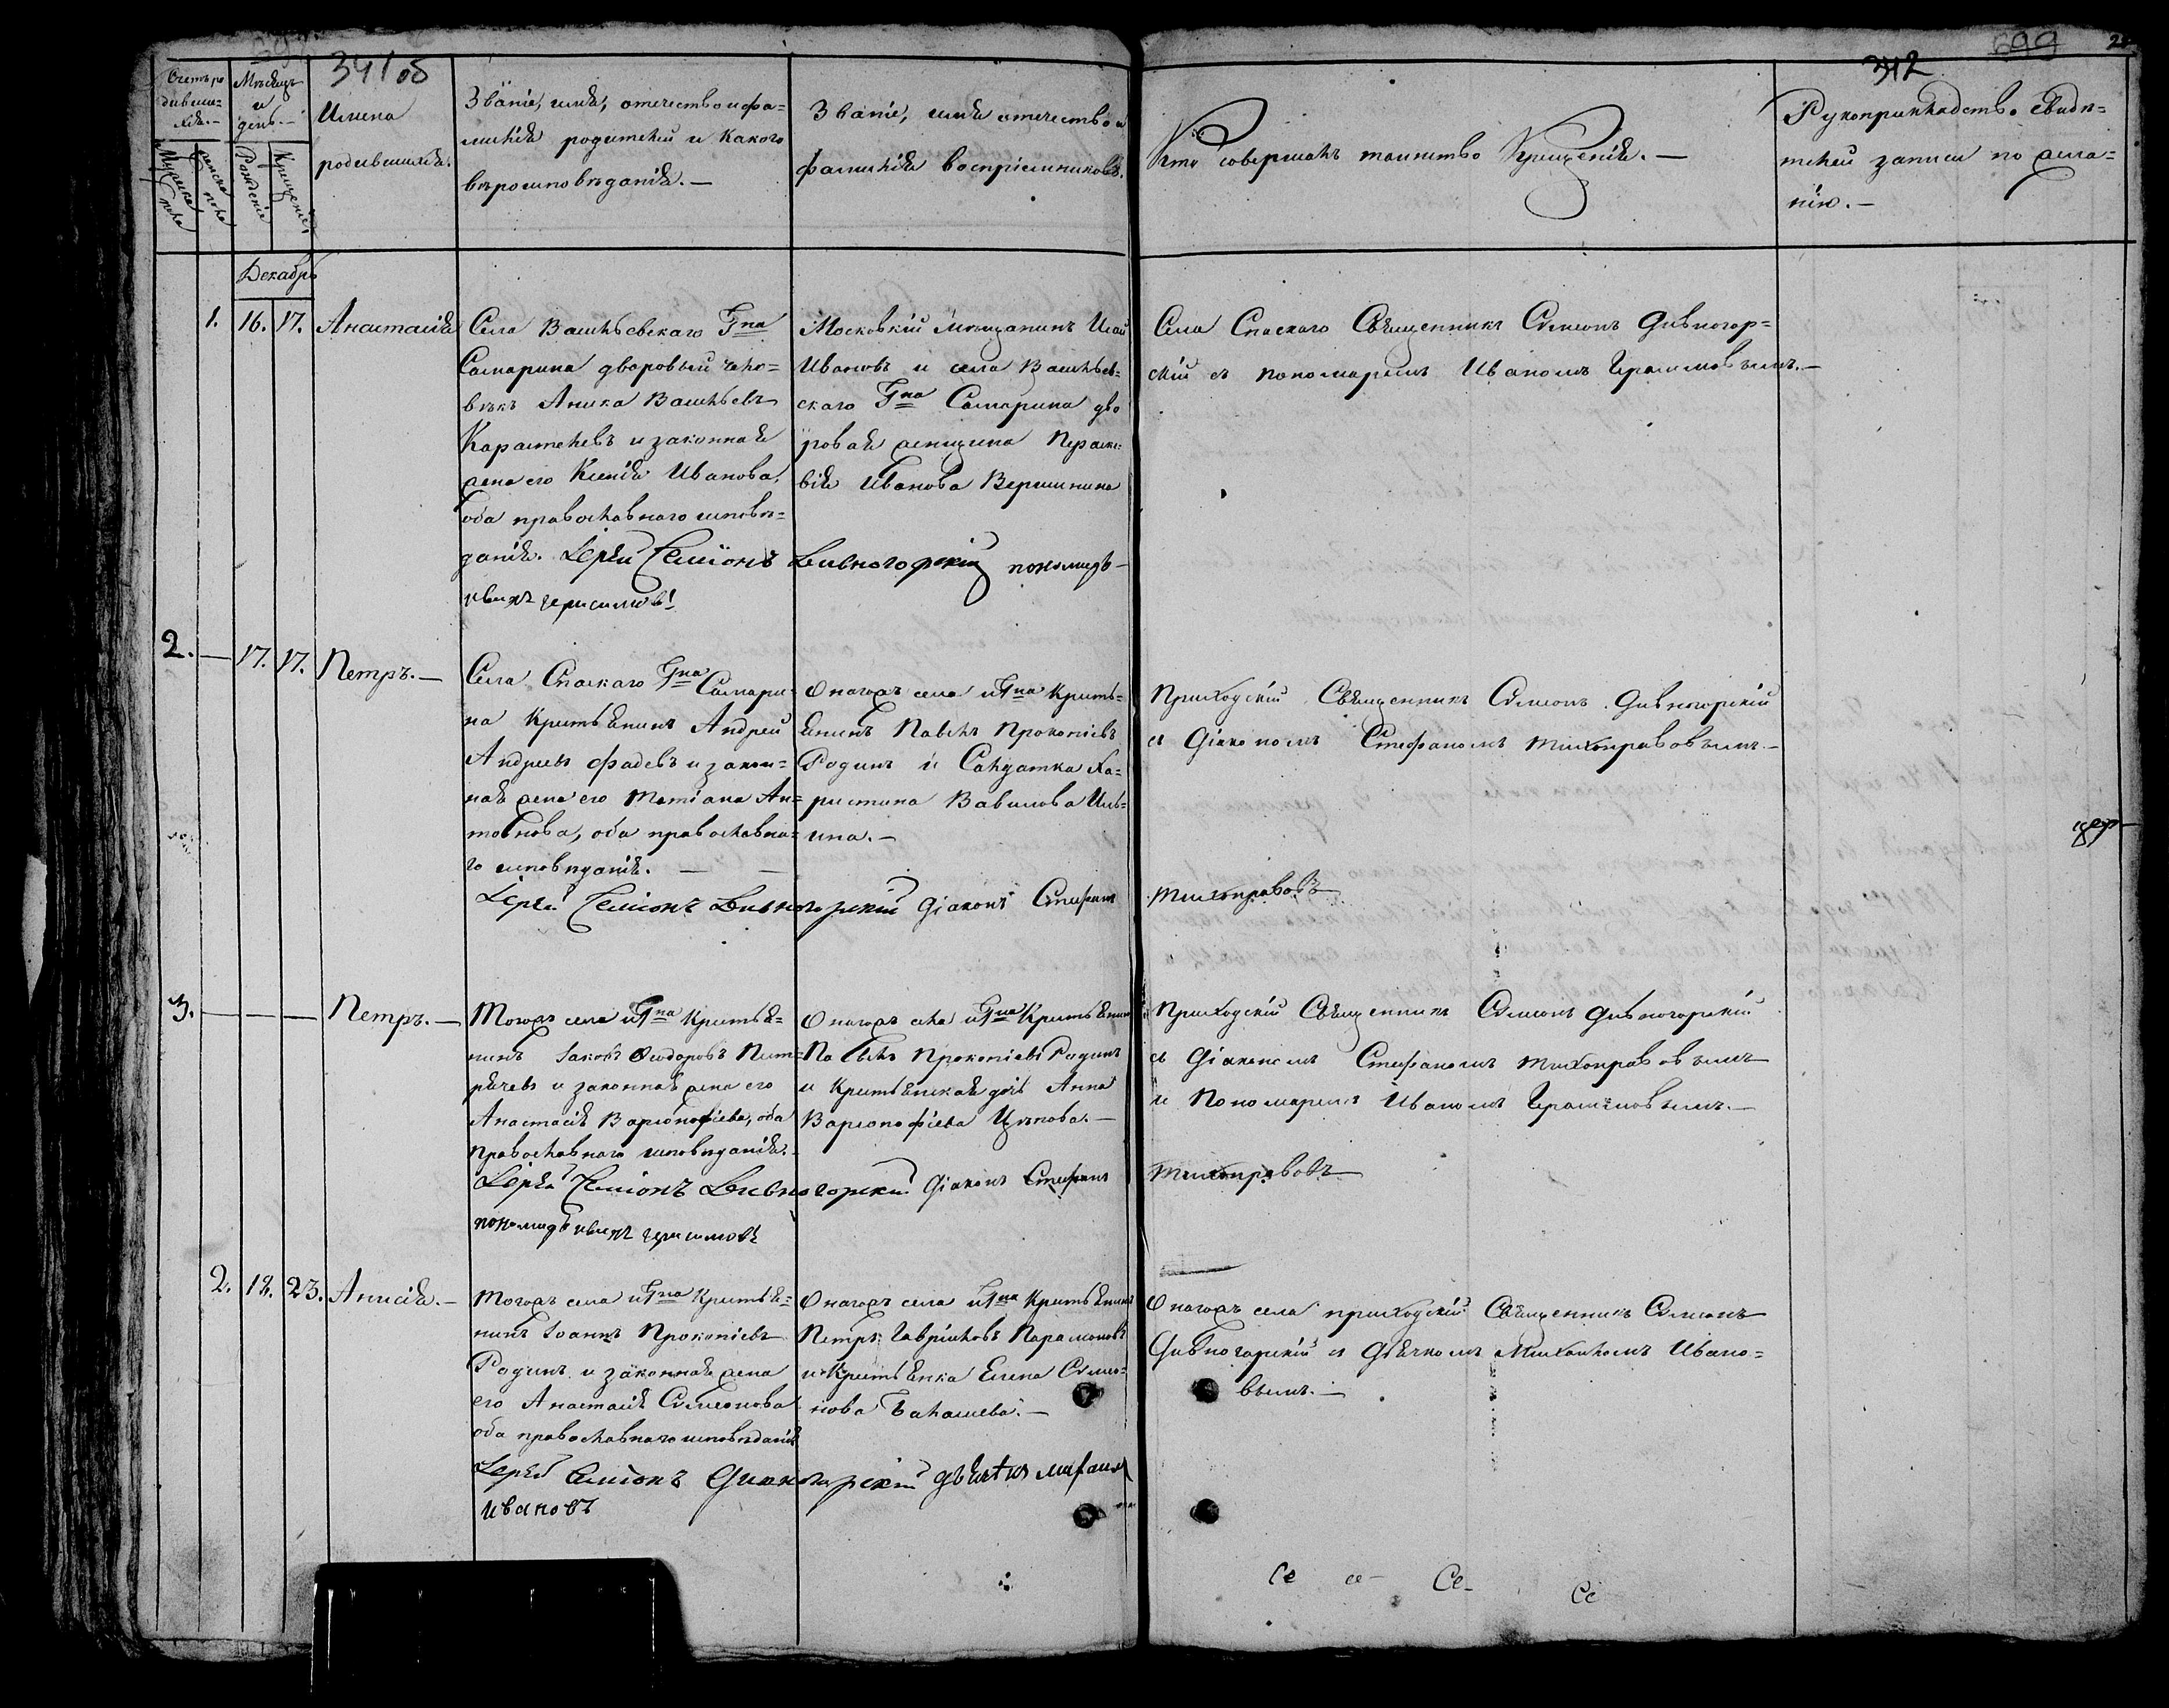 341 об
342
699
Счетъ ро
дивши=
хся.—
Мѣсяцъ
и
день.—
Мужска
пола
женска
пола
Рожденіе
Крещеніе
Имена
родившихся.
Званіе, имя, отечество и фа=
милія родителей и какого
вѣроисповѣданія.—
Званіе, имя отечество и
фамилія воспріемниковъ.
Кто совершалъ таинство Крещенія.—
Рукоприкладство свидѣ=
телей записи по жела=
нію.—
Декабрь
1. 16. 17. Анастасія
Села Васильевскаго Гна
Самарина дворовый чело=
вѣкъ Аника Васильевъ
и законная
жена его Ксенія Иванова,
оба православнаго исповѣ=
данія. Іерей Симеонъ Дивногорскій пономарь
Иванъ Герасимовъ
Московскій мѣщанинъ
Ивановъ и села Васильев=
скаго Гна Самарина дво
ровая женщина Параске=
вія Иванова Вершинина
Села Спаскаго Священникъ Сѵмеонъ Дивногор=
скій съ пономаремъ Иваномъ Герасимовымъ.—
2. — 17. 17. Петръ.—
Села Спаскаго Гна Самари=
на Крестьянинъ Андрей
Андреевъ Фадеевъ и закон=
ная жена его Татіана Ан=
тонова, оба православна=
го исповѣданія.—
Іерей Симеонъ Дивногорскій Діаконъ Стефанъ Тихонравовъ
Онагожъ села и Гна Кресть=
янинъ Павелъ Прокопіевъ
Родинъ и Салдатка Ха=
ритина Вавилова Иль=
ина.—
Приходскій Священникъ Сѵмеонъ Дивногорскій
съ Діакономъ Стефаномъ Тихонравовымъ.—
3. — — — Петръ.—
Тогожъ села и Гна Крестья=
нинъ Іаковъ Ѳеодоровъ
и законная жена его
Анастасія Варѳоломѣева, оба
православнаго исповѣданія.
Іерей Симеонъ Дивногорскій Діаконъ Стефанъ Тихонравовъ
пономарь Иванъ Герасимовъ
Онагожъ села и Гна Крестьянинъ
Павелъ Прокопіевъ Родинъ
и Крестьянская дочь Анна
—
Приходскій Священникъ Сѵмеонъ Дивногорскій
съ Діакономъ Стефаномъ Тихонравовымъ
и Пономаремъ Иваномъ Герасимовымъ.—
2. 18. 23. Анисія.—
Тогожъ села и Гна Крестья=
нинъ Іоаннъ Прокопіевъ
Родинъ и законная жена
его Анастасія Сѵмеонова
оба православнаго исповѣданія
Іерей Симеонъ Дивногорскій дьячекъ Михаилъ
Ивановъ
Онагожъ села и Гна Крестьянинъ
Петръ Гавріиловъ Парамоновъ
и Крестьянка Елена Сѵмео=
нова Балашева.—
Онагожъ села приходскій Священникъ Сѵмеонъ
Дивногорскій съ Дьячкомъ Михаиломъ Ивано=
вымъ.—
Се се Се Се